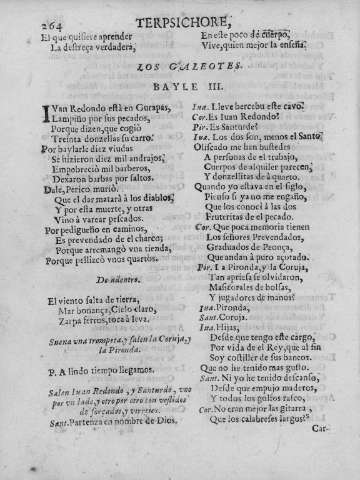 264 TERPSICHORE,
El que quisiere aprender
La destreça verdadera,
En este poco de cuerpo,
Vive, quien mejor la enseña.
LOS GALEOTES.
BAYLE III.
IVan Redondo està en Gurapas,
Lampiño por sus pecados,
Porque dizen, que cogiò
Treinta donzellas su carro.
Por baylarle diez viudas
Se hizieron diez mil andrajos,
Empobreciò mil barberos,
Dexaron barbas por saltos.
Dale, Perico muriò.
Que el dar matarà à los diablos,
Y por esta muerte, y otras
Vino à varear pescados.
Por pedigueño en caminos,
Es prevendado de el charco;
Porque arremangò vna tienda,
Porque pellizcò vnos quartos.
De adentro.
El viento salta de tierra,
Mar bonança, Cielo claro,
Zarpa ferros, toca à leva.
Suena vna trompeta, y salen la Coruja, y
la Pironda.
P. A lindo tiempo llegamos.
Salen Iuan Redondo, y Santurde, vno
por vn lado, y otro por otro con vestidos
de forçados, y virretes.
Sant. Partenza en nombre de Dios.
Iua. Lleve hercebu este cavo.
Cor. Es Iuan Redondo?
Pir. Es Santurde?
Iua. Los dos son, menos el Santo.
Oliscado me han bustedes
A personas de el trabajo,
Cuerpos de alquiler parecen,
Y donzellitas de à quarto.
Quando yo estava en el siglo,
Picosa si ya no me engaño,
Que los conoci à las dos
Fruteritas de el pecado.
Cor. Que poca memoria tienen
Los señores Prevendados,
Graduados de Peonça,
Que andan à puro açotado.
Par. La Pironda, y la Coruja,
Tan apriesa se olvidaron,
Mascorales de bolsas,
Y jugadores de manos?
Iua. Pironda,
Sant. Coruja.
Iua. Hijas,
Desde que tengo este cargo,
Por vida de el Rey, que al fin
Soy costiller de sus bancos.
Que no he tenido mas gusto.
Sant. Ni yo he tenido descanso,
Desde que empujo maderos,
Y todos los golfos rasco,
Cor. No eran mejor las gitarra,
Que los calabreses largos?
Car-